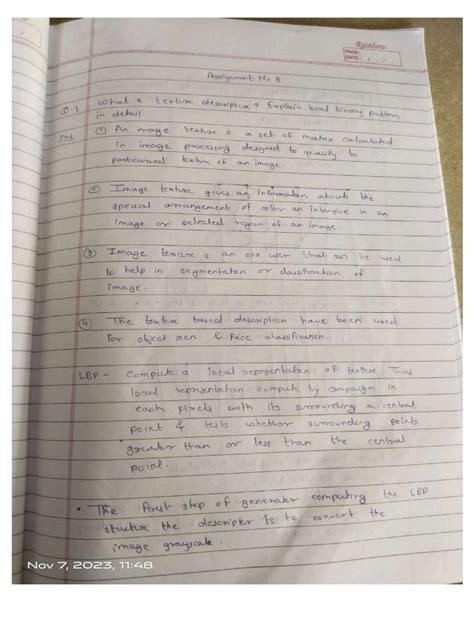 Rainbow
PAGE:
DATE: / /
Assignment No 8
Q.1 What is texture descriptor & Explain local binary pattern
in detail
Ans ① An image texture is a set of matrix calculated
in image processing designed to quantify to
texture of an image.
② Image texture gives an information about the
arrangement of color an intensive in an
image or selected region of an image.
③ Image texture is an that can be used
to help in segmentation or classification of
image.
④ The texture based description have been used
for object & face classification.
LBP - Compute a local representation of texture This
local representation compute by in
each pixels with its surrounding a central
point & tests whether surrounding points
greater than or less than the central
point.
• The first step of computing the LBP
the descripter is to convert the
image grayscale.
Nov 7, 2023, 11:48